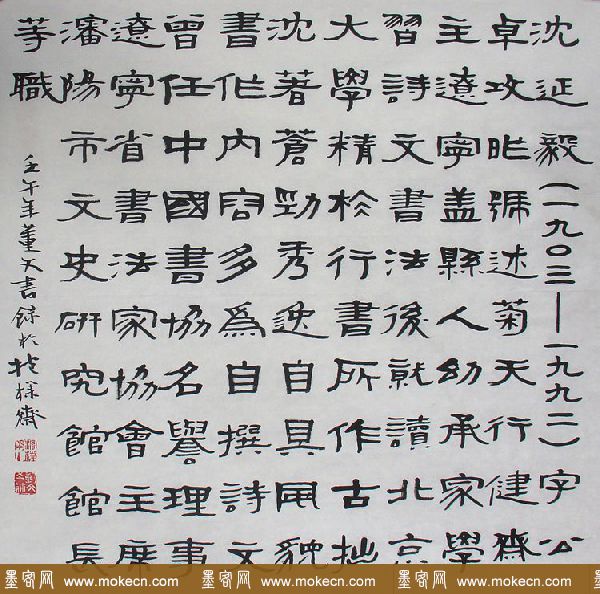 沈延毅(一九〇三—一九九二)字公
卓攻昨號述菊天行健齋
主遼寧蓋縣人幼承家學
習詩文書法後就讀北京
大學精於行書所作古拙
沈著蒼勁秀逸自具風貌
書作内容多為自撰詩文
曾任中國書協名譽理事
遼寧省書法家協會主席
瀋陽市文史研究館館長
等職
壬午年董文書録於齋
墨客网 www.mokecn.com 墨客网 www.mokecn.com 墨客网 www.mokecn.com